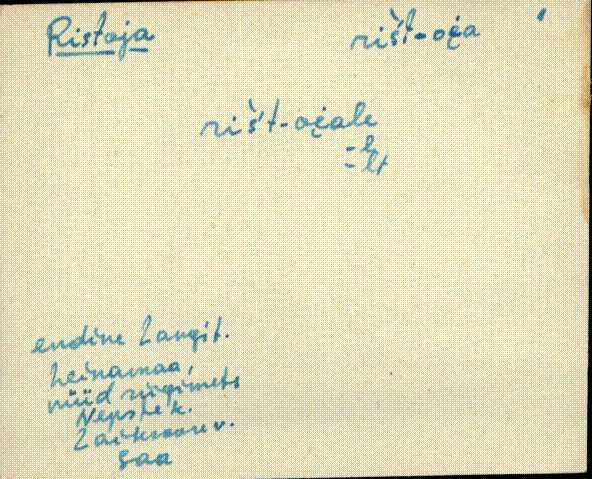 Ristoja rišt-oi̯a
rišt-oi̯ale
-l
-lt
endine Langit.
heinamaa,
nüüd riigimets
Nepste k.
Laiksaare v.
Saa